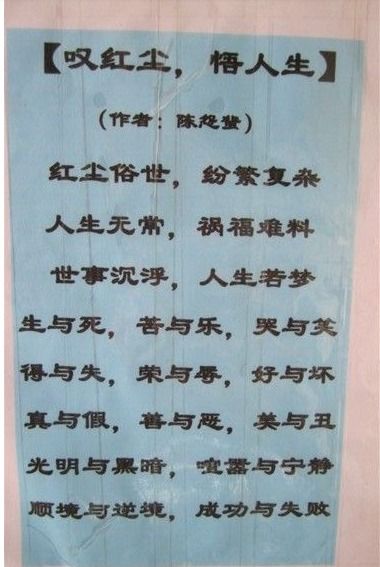 【叹红尘，悟人生】
(作者：陈怨蛰)
红尘俗世，纷繁复杂
人生无常，祸福难料
世事沉浮，人生若梦
生与死，苦与乐，哭与笑
得与失，荣与辱，好与坏
真与假，善与恶，美与丑
光明与黑暗，喧嚣与宁静
顺境与逆境，成功与失败